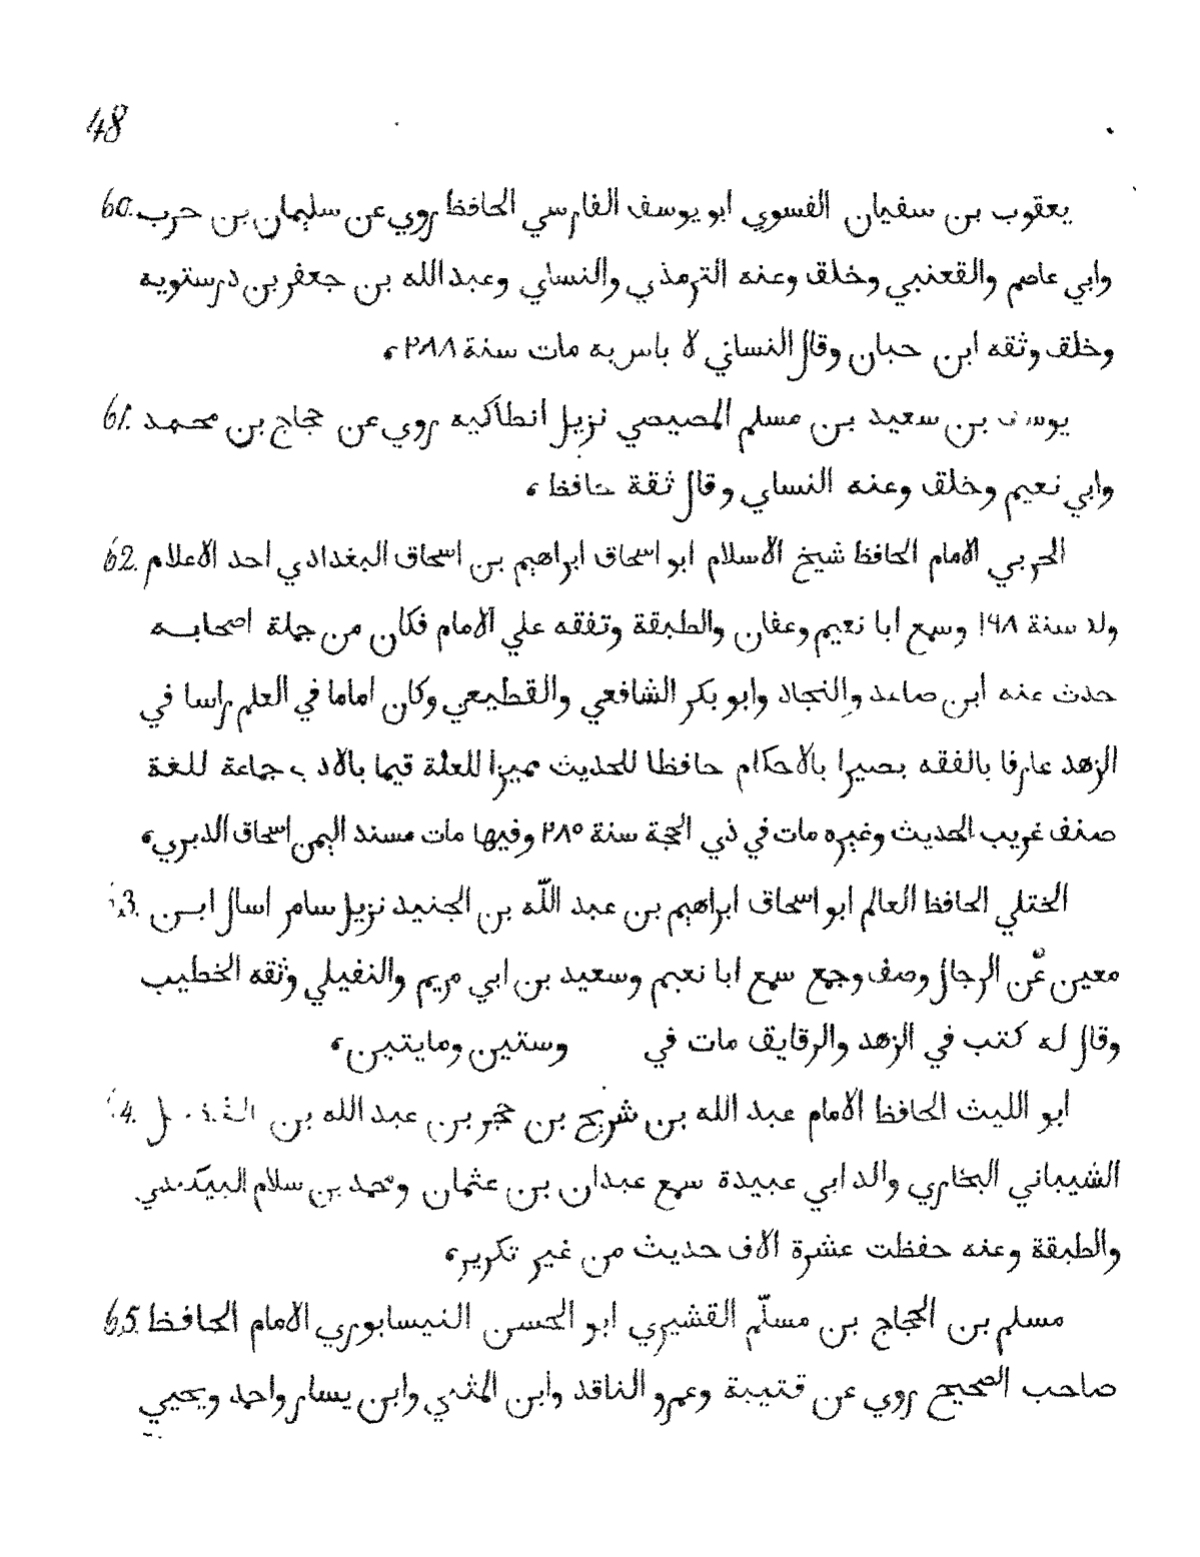 48
يعقوب بن سفيان الفسوي ابو يوسف الفارسي الحافظ روي عن سليمان بن حرب 60.
وابي عاصم والقعنبي وخلق وعنه الترمذي والنساي وعبد الله بن جعفر بن درستويه
وخلق وثقه ابن حبان وقال النساني لا باس به مات سنة ٢٨٨،
يوسف بن سعيد بن مسلم المصيصي نزيل انطاكيه روي عن حجاج بن محمد 61.
وابي نعيم وخلق وعنه النساي وقال ثقة حافظ،
الحربي الامام الحافظ شيخ الاسلام ابو اسحاق ابراهيم بن اسحاق البغدادي احد الاعلام 62.
ولد سنة ١٩٨ وسمع ابا نعيم وعفان والطبقة وتفقه علي الامام فكان من جملة اصحابه
حدث عنه ابن صاعد والنجاد وابو بكر الشافعي والقطيعي وكان اماما في العلم راسا في
الزهد عارفا بالفقه بصيرا بالاحكام حافظا للحديث مميزا للعلة قيما بالادب جماعة للغة
صنف غريب الحديث وغيره مات في ذي الحجة سنة ٢٨٥ وفيها مات مسند اليمن اسحاق الدبري،
الختلي الحافظ العالم ابو اسحاق ابراهيم بن عبد اللّه بن الجنيد نزيل سامر اسال ابن 3.
معين عن الرجال وصف وجمع سمع ابا نعيم وسعيد بن ابي مريم والنفيلي وثقه الخطيب
وقال له كتب في الزهد والرقايق مات في وستين ومايتين،
ابو الليث الحافظ الامام عبد الله بن شريح بن حجر بن عبد الله بن الفضل 4.
الشيباني البخاري والد ابي عبيدة سمع عبدان بن عثمان ومحمد بن سلام البيكندي
والطبقة وعنه حفظت عشرة الاف حديث من غير تكرير،
مسلم بن الحجاج بن مسلّم القشيري ابو الحسن النيسابوري الامام الحافظ 65.
صاحب الصحيح روي عن قتيبة وعمرو الناقد وابن المثني وابن يسار واحمد ويحيي